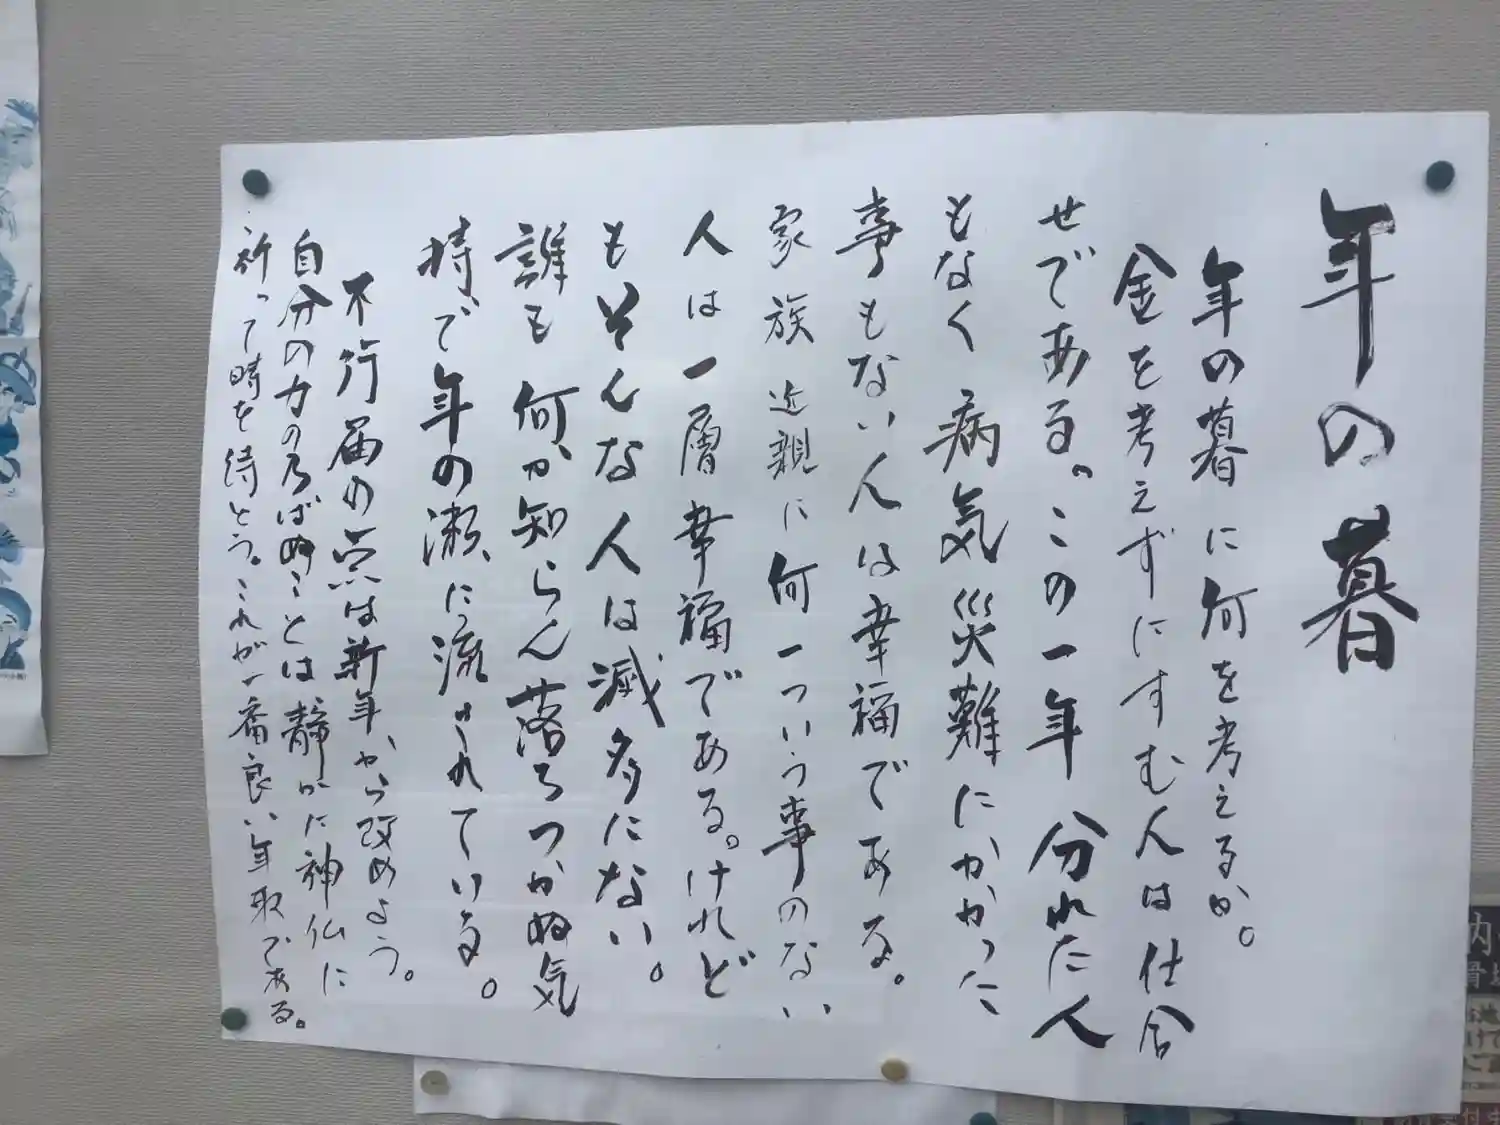 年の暮
年の暮に何を考えるか。
金を考えずにすむ人は仕合
せである。この一年 分れた人
もなく 病気災難にかかった
事もない人は幸福である。
家族 近親に何一つという事のない
人は一層幸福である。けれど
もそんな人は滅多にない。
誰も何か知らん落ちつかぬ気
持で年の瀬に流されている。
不行届の点は新年から改めよう。
自分の力の及ばぬことは静かに神仏に
祈って時を待とう。これが一番良い年取である。
内